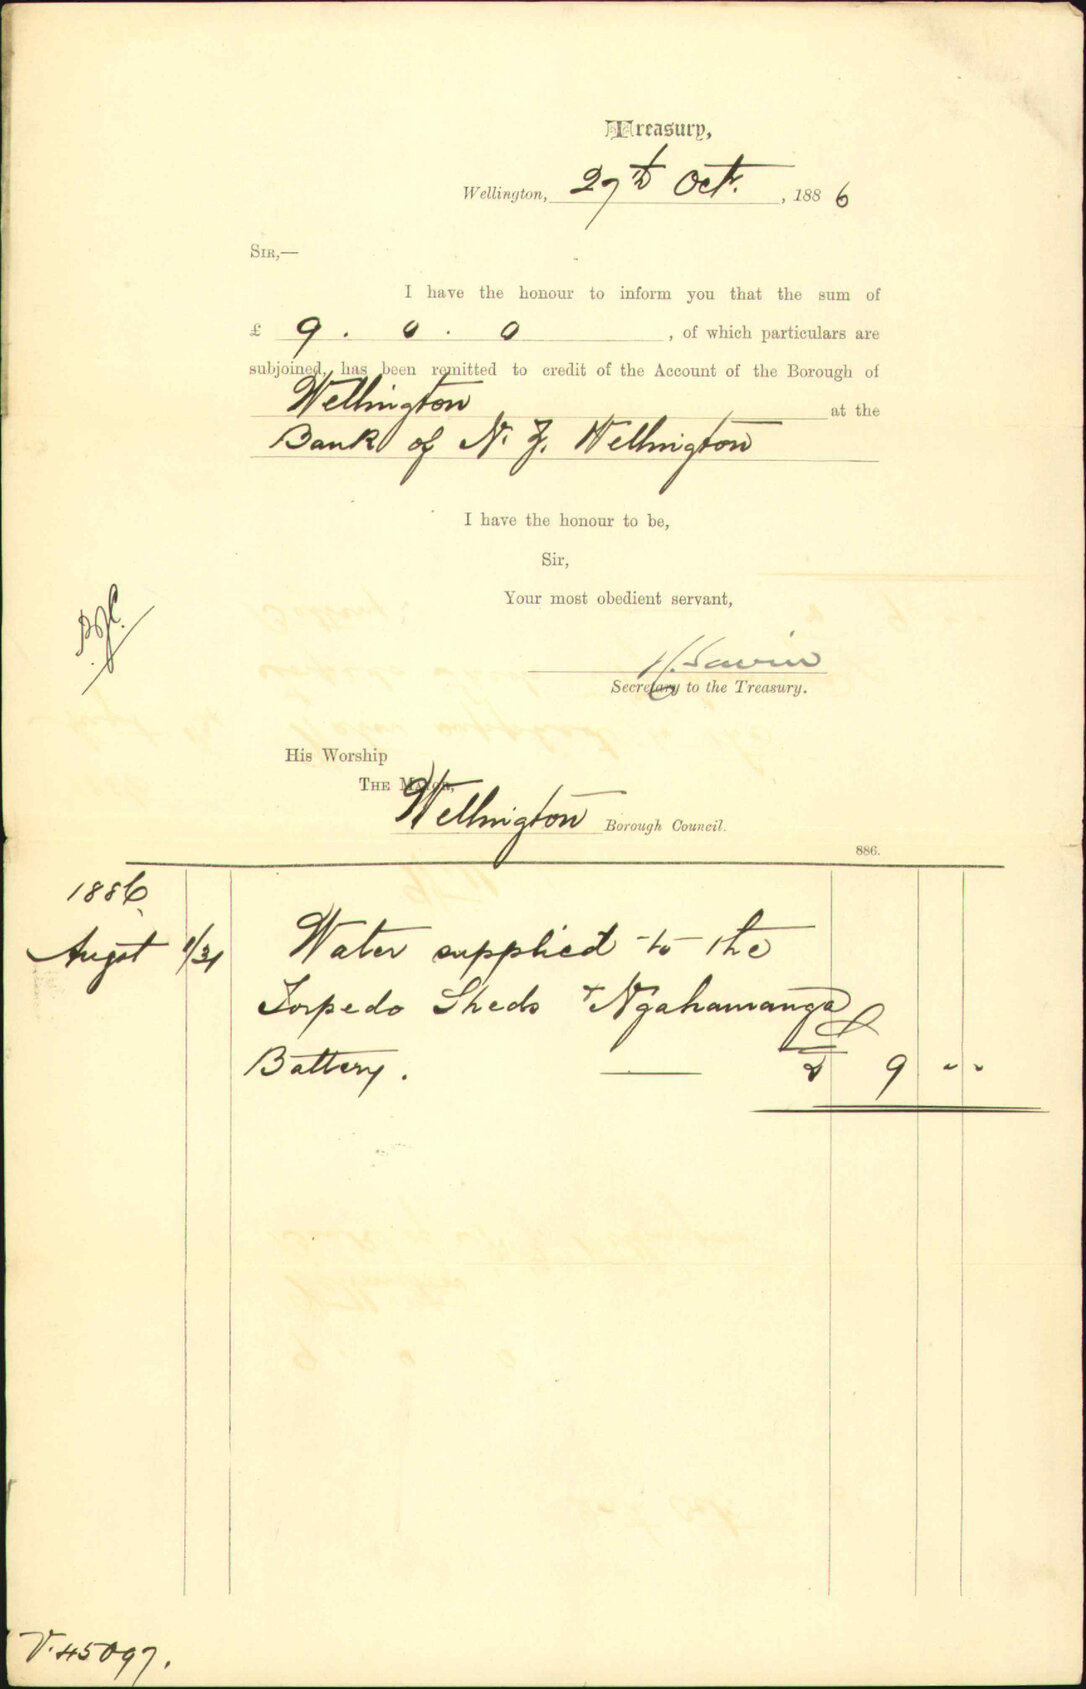 Treasury,
Wellington, 27th Oct. , 1886
SIR,—
I have the honour to inform you that the sum of
£ 9 . 0 . 0 , of which particulars are
subjoined, has been remitted to credit of the Account of the Borough of
Wellington at the
Bank of N. Z. Wellington
I have the honour to be,
Sir,
Your most obedient servant,
Secretary to the Treasury.
His Worship
THE MAYOR,
Wellington Borough Council.
886.
1886
Augst 1/31 Water supplied to the
Torpedo Sheds + Ngahauranga
Battery. £ 9 " "
V. 45097.